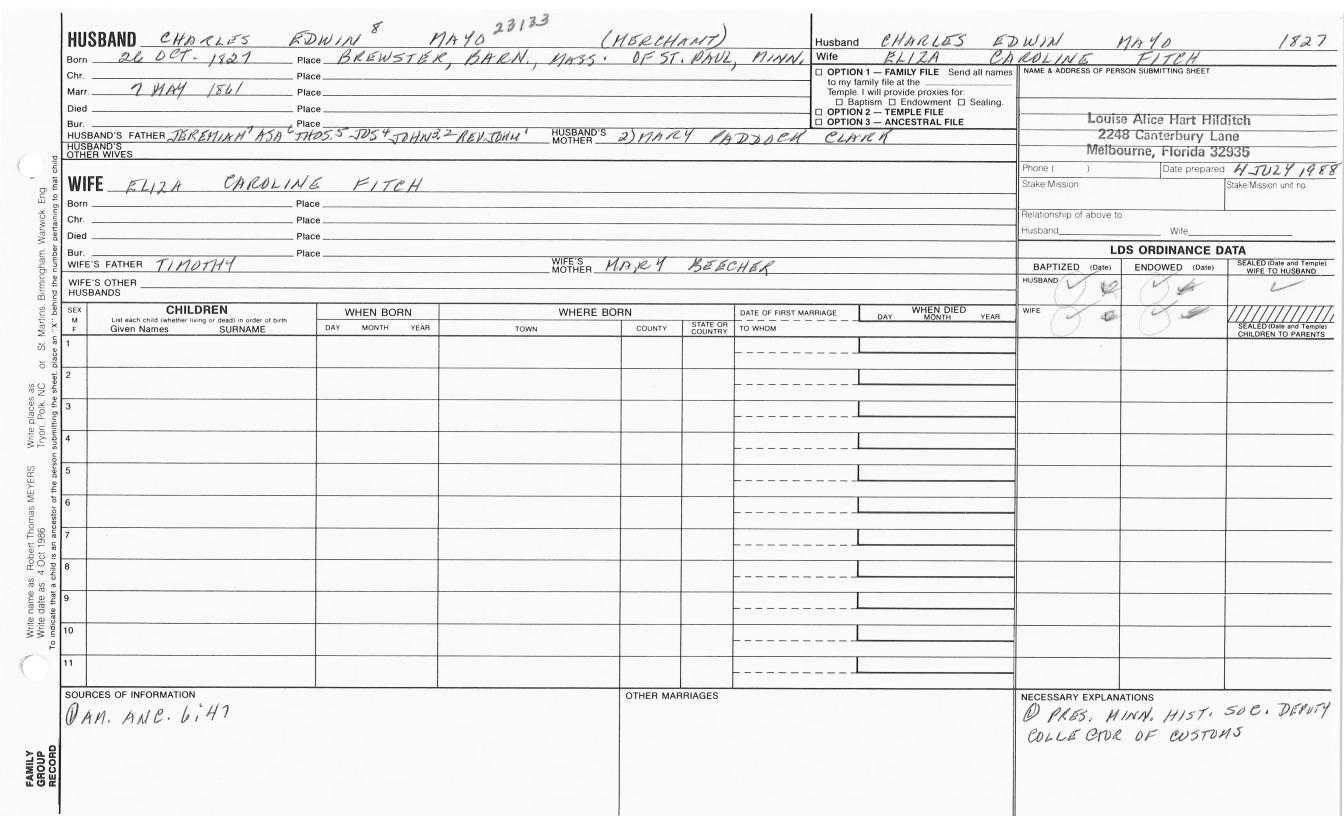 HUSBAND CHARLES EDWIN 8 MAYO 23133 (MERCHANT)
Born 26 OCT. 1827 Place BREWSTER, BARN., MASS. OF ST. PAUL, MINN.
Chr. Place
Marr. 7 MAY 1861 Place
Died Place
Bur. Place
HUSBAND'S FATHER JEREMIAH7 ASA6 THOS.5 JOS4 JOHN3,2 REV.JOHN1 HUSBAND'S MOTHER 2) MARY PADDOCK CLARK
HUSBAND'S OTHER WIVES
WIFE ELIZA CAROLINE FITCH
Born Place
Chr. Place
Died Place
Bur. Place
WIFE'S FATHER TIMOTHY WIFE'S MOTHER MARY BEECHER
WIFE'S OTHER HUSBANDS
Husband CHARLES EDWIN MAYO 1827
Wife ELIZA CAROLINE FITCH
OPTION 1 — FAMILY FILE Send all names
to my family file at the
Temple. I will provide proxies for:
Baptism Endowment Sealing.
OPTION 2 — TEMPLE FILE
OPTION 3 — ANCESTRAL FILE
NAME & ADDRESS OF PERSON SUBMITTING SHEET
Louise Alice Hart Hilditch
2248 Canterbury Lane
Melbourne, Florida 32935
Phone ( ) Date prepared 4 JULY 1988
Stake/Mission Stake/Mission unit no.
Relationship of above to
Husband Wife
LDS ORDINANCE DATA
BAPTIZED (Date) ENDOWED (Date) SEALED (Date and Temple) WIFE TO HUSBAND
HUSBAND
WIFE
SEALED (Date and Temple)
CHILDREN TO PARENTS
SEX M F
CHILDREN
List each child (whether living or dead) in order of birth
Given Names SURNAME
WHEN BORN
DAY MONTH YEAR
WHERE BORN
TOWN COUNTY STATE OR COUNTRY
DATE OF FIRST MARRIAGE
TO WHOM
WHEN DIED
DAY MONTH YEAR
1
2
3
4
5
6
7
8
9
10
11
SOURCES OF INFORMATION
① AM. ANC. 6:47
OTHER MARRIAGES
NECESSARY EXPLANATIONS
① PRES. MINN. HIST. SOC. DEPUTY
COLLECTOR OF CUSTOMS
Write name as: Robert Thomas MEYERS Write places as: Tryon, Polk, NC or St. Martins, Birmingham, Warwick, Eng.
Write date as: 4 Oct 1986
To indicate that a child is an ancestor of the person submitting the sheet, place an "X" behind the number pertaining to that child
FAMILY
GROUP
RECORD